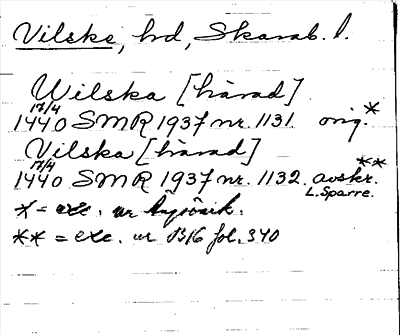 Vilske, hd, Skarab. l.
Wilska [härad]
17/4
1440 SMR 1937 nr. 1131. orig.*
Vilska [härad]
17/4
1440 SMR 1937 nr. 1132. avskr.**
L. Sparre.
* = exc. ur
** = exc. ur B16 fol. 340